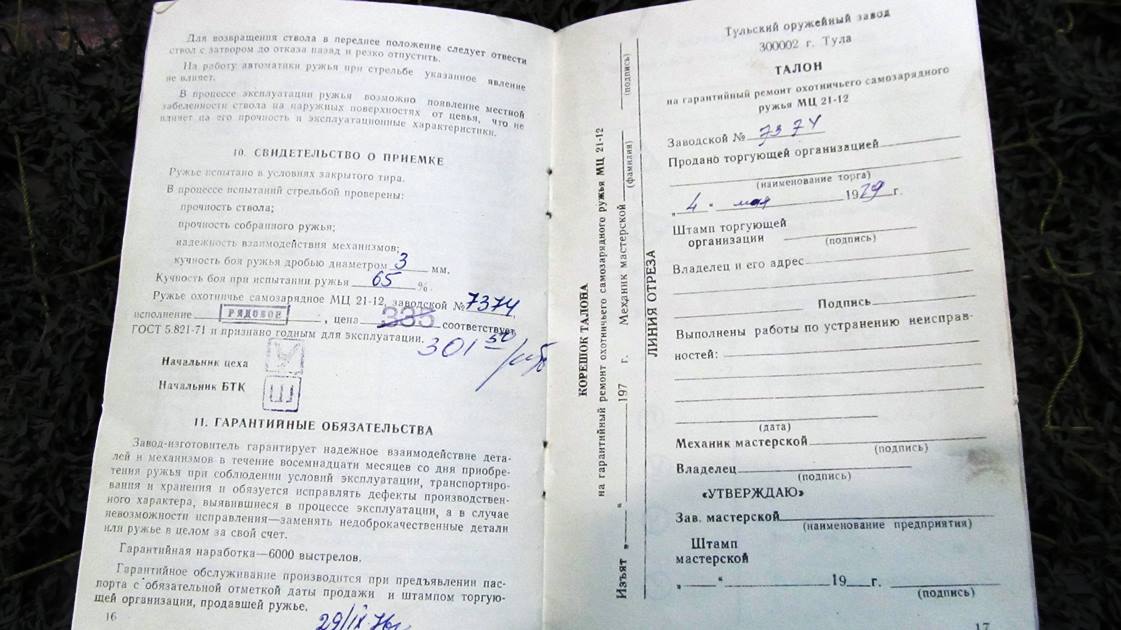 Для возвращения ствола в переднее положение следует отвести
ствол с затвором до отказа назад и резко отпустить.
На работу автоматики ружья при стрельбе указанное явление
не влияет.
В процессе эксплуатации ружья возможно появление местной
забеленности ствола на наружных поверхностях от цевья, что не
влияет на его прочность и эксплуатационные характеристики.
10. СВИДЕТЕЛЬСТВО О ПРИЕМКЕ
Ружье испытано в условиях закрытого тира.
В процессе испытаний стрельбой проверены:
прочность ствола;
прочность собранного ружья;
надежность взаимодействия механизмов;
кучность боя ружья дробью диаметром 3 мм.
Кучность боя при испытании ружья 65 %.
Ружье охотничье самозарядное МЦ 21-12, заводской № 7374,
исполнение РЯДОВОЙ, цена 335 соответствует
ГОСТ 5.821-71 и признано годным для эксплуатации.
301 50 руб
Начальник цеха
Начальник БТК Ш
11. ГАРАНТИЙНЫЕ ОБЯЗАТЕЛЬСТВА
Завод-изготовитель гарантирует надежное взаимодействие дета-
лей и механизмов в течение восемнадцати месяцев со дня приобре-
тения ружья при соблюдении условий эксплуатации, транспортиро-
вания и хранения и обязуется исправлять дефекты производствен-
ного характера, выявившиеся в процессе эксплуатации, а в случае
невозможности исправления—заменять недоброкачественные детали
или ружье в целом за свой счет.
Гарантийная наработка—6000 выстрелов.
Гарантийное обслуживание производится при предъявлении пас-
порта с обязательной отметкой даты продажи и штампом торгую-
щей организации, продавшей ружье.
29/IX
16
КОРЕШОК ТАЛОНА
на гарантийный ремонт охотничьего самозарядного ружья МЦ 21-12
Изъят „ “ 197 г. Механик мастерской
(фамилия) (подпись)
ЛИНИЯ ОТРЕЗА
Тульский оружейный завод
300002 г. Тула
ТАЛОН
на гарантийный ремонт охотничьего самозарядного
ружья МЦ 21-12
Заводской № 7374
Продано торгующей организацией
(наименование торга)
„ 4 “ мая 1979 г.
Штамп торгующей
организации
(подпись)
Владелец и его адрес
Подпись
Выполнены работы по устранению неисправ-
ностей:
(дата)
Механик мастерской
(подпись)
Владелец
(подпись)
«УТВЕРЖДАЮ»
Зав. мастерской
(наименование предприятия)
Штамп
мастерской
„ “ 19 г.
(подпись)
17